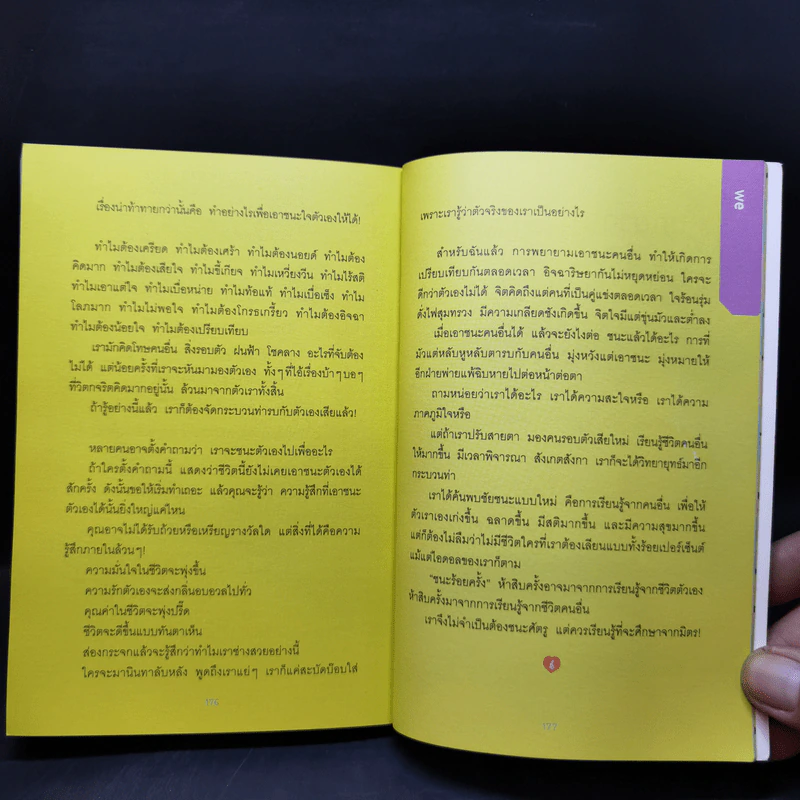 เรื่องน่าท้าทายกว่านั้นคือ ทำอย่างไรเพื่อเอาชนะใจตัวเองให้ได้!
ทำไมต้องเครียด ทำไมต้องเศร้า ทำไมต้องนอยด์ ทำไมต้อง
คิดมาก ทำไมต้องเสียใจ ทำไมขี้เกียจ ทำไมเหวี่ยงวีน ทำไมไร้สติ
ทำไมเอาแต่ใจ ทำไมเบื่อหน่าย ทำไมท้อแท้ ทำไมเบื่อเซ็ง ทำไม
โลภมาก ทำไมไม่พอใจ ทำไมต้องโกรธเกรี้ยว ทำไมต้องอิจฉา
ทำไมต้องน้อยใจ ทำไมต้องเปรียบเทียบ
เรามักคิดโทษคนอื่น สิ่งรอบตัว ฝนฟ้า โชคลาง อะไรที่จับต้อง
ไม่ได้ แต่น้อยครั้งที่เราจะหันมามองตัวเอง ทั้งๆ ที่ไอ้เรื่องบ้าๆ บอๆ
ที่วิตกจริตคิดมากอยู่นั้น ล้วนมาจากตัวเราทั้งสิ้น
ถ้ารู้อย่างนี้แล้ว เราก็ต้องจัดกระบวนท่ารบกับตัวเองเสียแล้ว!
หลายคนอาจตั้งคำถามว่า เราจะชนะตัวเองไปเพื่ออะไร
ถ้าใครตั้งคำถามนี้ แสดงว่าชีวิตนี้ยังไม่เคยเอาชนะตัวเองได้
สักครั้ง ดังนั้นขอให้เริ่มทำเถอะ แล้วคุณจะรู้ว่า ความรู้สึกที่เอาชนะ
ตัวเองได้นั้นยิ่งใหญ่แค่ไหน
คุณอาจไม่ได้รับถ้วยหรือเหรียญรางวัลใด แต่สิ่งที่ได้คือความ
รู้สึกภายในล้วนๆ!
ความมั่นใจในชีวิตจะพุ่งขึ้น
ความรักตัวเองจะส่งกลิ่นอบอวลไปทั่ว
คุณค่าในชีวิตจะพุ่งปรี๊ด
ชีวิตจะดีขึ้นแบบทันตาเห็น
ส่องกระจกแล้วจะรู้สึกว่าทำไมเราช่างสวยอย่างนี้
ใครจะมานินทาลับหลัง พูดถึงเราแย่ๆ เราก็แค่สะบัดบ๊อบใส่
176
we
เพราะเรารู้ว่าตัวจริงของเราเป็นอย่างไร
สำหรับฉันแล้ว การพยายามเอาชนะคนอื่น ทำให้เกิดการ
เปรียบเทียบกันตลอดเวลา อิจฉาริษยากันไม่หยุดหย่อน ใครจะ
ดีกว่าตัวเองไม่ได้ จิตคิดถึงแต่คนที่เป็นคู่แข่งตลอดเวลา ใจร้อนรุ่ม
ดั่งไฟสุมทรวง มีความเกลียดชังเกิดขึ้น จิตใจมีแต่ขุ่นมัวและต่ำลง
เมื่อเอาชนะคนอื่นได้ แล้วจะยังไงต่อ ชนะแล้วได้อะไร การที่
มัวแต่หลับหูหลับตารบกับคนอื่น มุ่งหวังแต่เอาชนะ มุ่งหมายให้
อีกฝ่ายพ่ายแพ้ฉิบหายไปต่อหน้าต่อตา
ถามหน่อยว่าเราได้อะไร เราได้ความสะใจหรือ เราได้ความ
ภาคภูมิใจหรือ
แต่ถ้าเราปรับสายตา มองคนรอบตัวเสียใหม่ เรียนรู้ชีวิตคนอื่น
ให้มากขึ้น มีเวลาพิจารณา สังเกตสังกา เราก็จะได้วิทยายุทธ์มาอีก
กระบวนท่า
เราได้ค้นพบชัยชนะแบบใหม่ คือการเรียนรู้จากคนอื่น เพื่อให้
ตัวเราเองเก่งขึ้น ฉลาดขึ้น มีสติมากขึ้น และมีความสุขมากขึ้น
แต่ก็ต้องไม่ลืมว่าไม่มีชีวิตใครที่เราต้องเลียนแบบทั้งร้อยเปอร์เซ็นต์
แม้แต่ไอดอลของเราก็ตาม
"ชนะร้อยครั้ง" ห้าสิบครั้งอาจมาจากการเรียนรู้จากชีวิตตัวเอง
ห้าสิบครั้งมาจากการเรียนรู้จากชีวิตคนอื่น
เราจึงไม่จำเป็นต้องชนะศัตรู แต่ควรเรียนรู้ที่จะศึกษาจากมิตร!
177